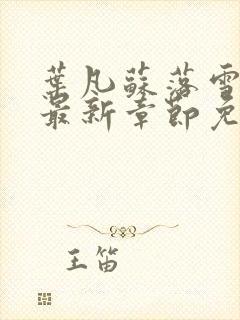 葉凡蘇落雪
最新章節免
王笛